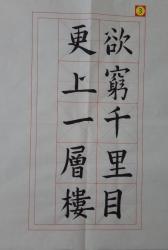 欲窮千里目
更上一層樓
3